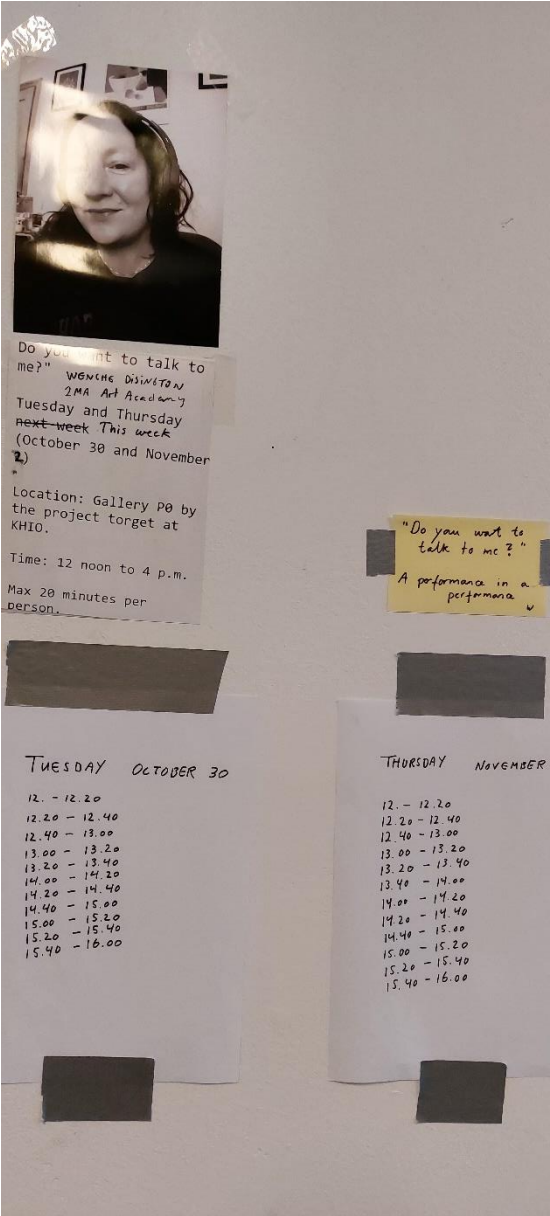 Do you want to talk to
me?"
WENCHE DISINGTON
2MA Art Academy
Tuesday and Thursday
next week This week
(October 30 and November
2)
Location: Gallery P0 by
the project torget at
KHIO.
Time: 12 noon to 4 p.m.
Max 20 minutes per
person.
"Do you wat to
talk to me?"
A performance in a
performance
TUESDAY OCTOBER 30
12. - 12.20
12.20 - 12.40
12.40 - 13.00
13.00 - 13.20
13.20 - 13.40
14.00 - 14.20
14.20 - 14.40
14.40 - 15.00
15.00 - 15.20
15.20 - 15.40
15.40 - 16.00
THURSDAY NOVEMBER
12. - 12.20
12.20 - 12.40
12.40 - 13.00
13.00 - 13.20
13.20 - 13.40
13.40 - 14.00
14.00 - 14.20
14.20 - 14.40
14.40 - 15.00
15.00 - 15.20
15.20 - 15.40
15.40 - 16.00